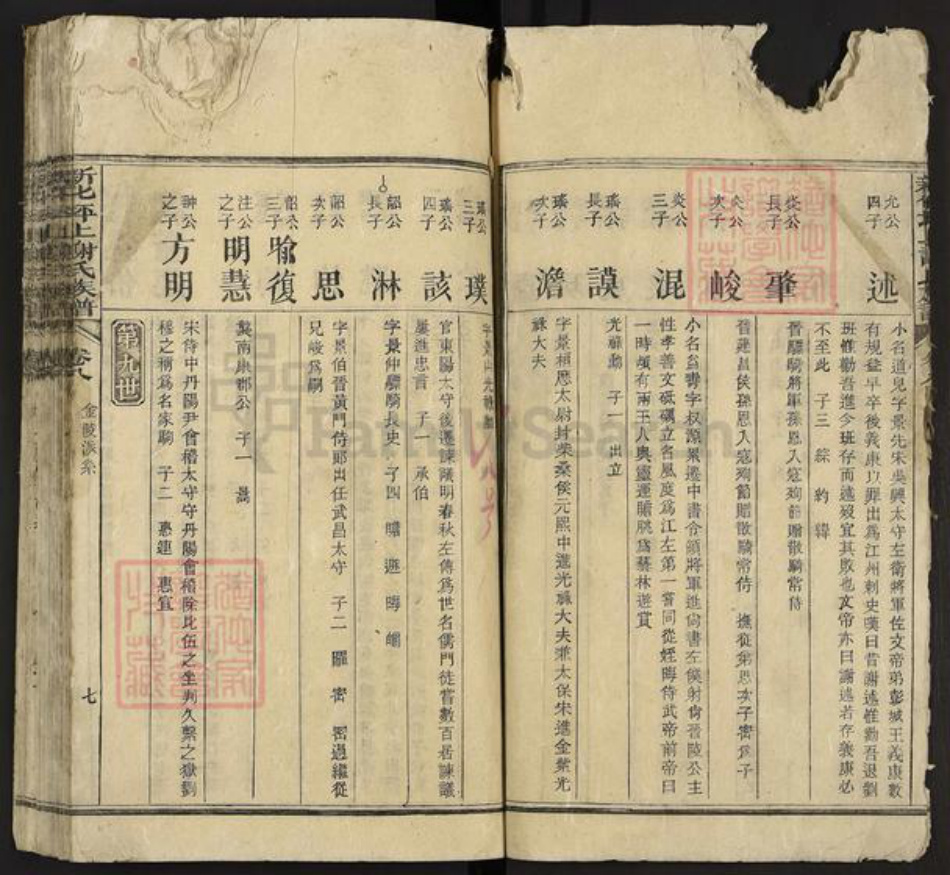 允公
四子
述
小名道兒字景先宋吳興太守左衛將軍佐文帝弟彭城王義康數
有規益早卒後義康以罪出為江州刺史嘆曰昔謝述惟勸吾退劉
班惟勸吾進今班存而述歿宜其敗也文帝亦曰謝述若存義康必
不至此 子三 綜 約 緯
炎公
長子
肇
晉驃騎將軍孫恩入寇殉節贈散騎常侍
炎公
次子
峻
晉建昌侯孫恩入寇殉節贈散騎常侍 撫從弟思次子密為子
炎公
三子
混
小名益壽字叔源累遷中書令領將軍進尚書左僕射尚晉陵公主
性孝善文砥礪立名風度為江左第一嘗同從姪晦侍武帝前帝曰
一時頓有兩玉人與靈運贍眺為藝林遊賞
瑤公
長子
謨
光祿勳 子一 出立
瑤公
次子
澹
字景桓歷太尉封柴桑侯元熙中進光祿大夫兼太保宋進金紫光
祿大夫
瑤公
三子
璞
字景山光祿勳
瑤公
四子
該
官東陽太守後遷諫議明春秋左傳為世名儒門徒嘗數百居諫議
屢進忠言 子一 承伯
韶公
長子
淋
字景仲驃騎長史 子四 瞻 遯 晦 㬭
韶公
次子
思
字景伯晉黃門侍郎出任武昌太守 子二 曜 密 密過繼從
兄峻為嗣
韶公
三子
喻
復
注公
之子
明慧
襲南康郡公 子一 暠
神公
之子
方明
宋侍中丹陽尹會稽太守守丹陽會稽除比伍之坐判久繫之獄劉
穆之稱為名家駒 子二 惠連 惠宜
第九世
新化坪上謝氏族譜
卷八
金陵派系
七